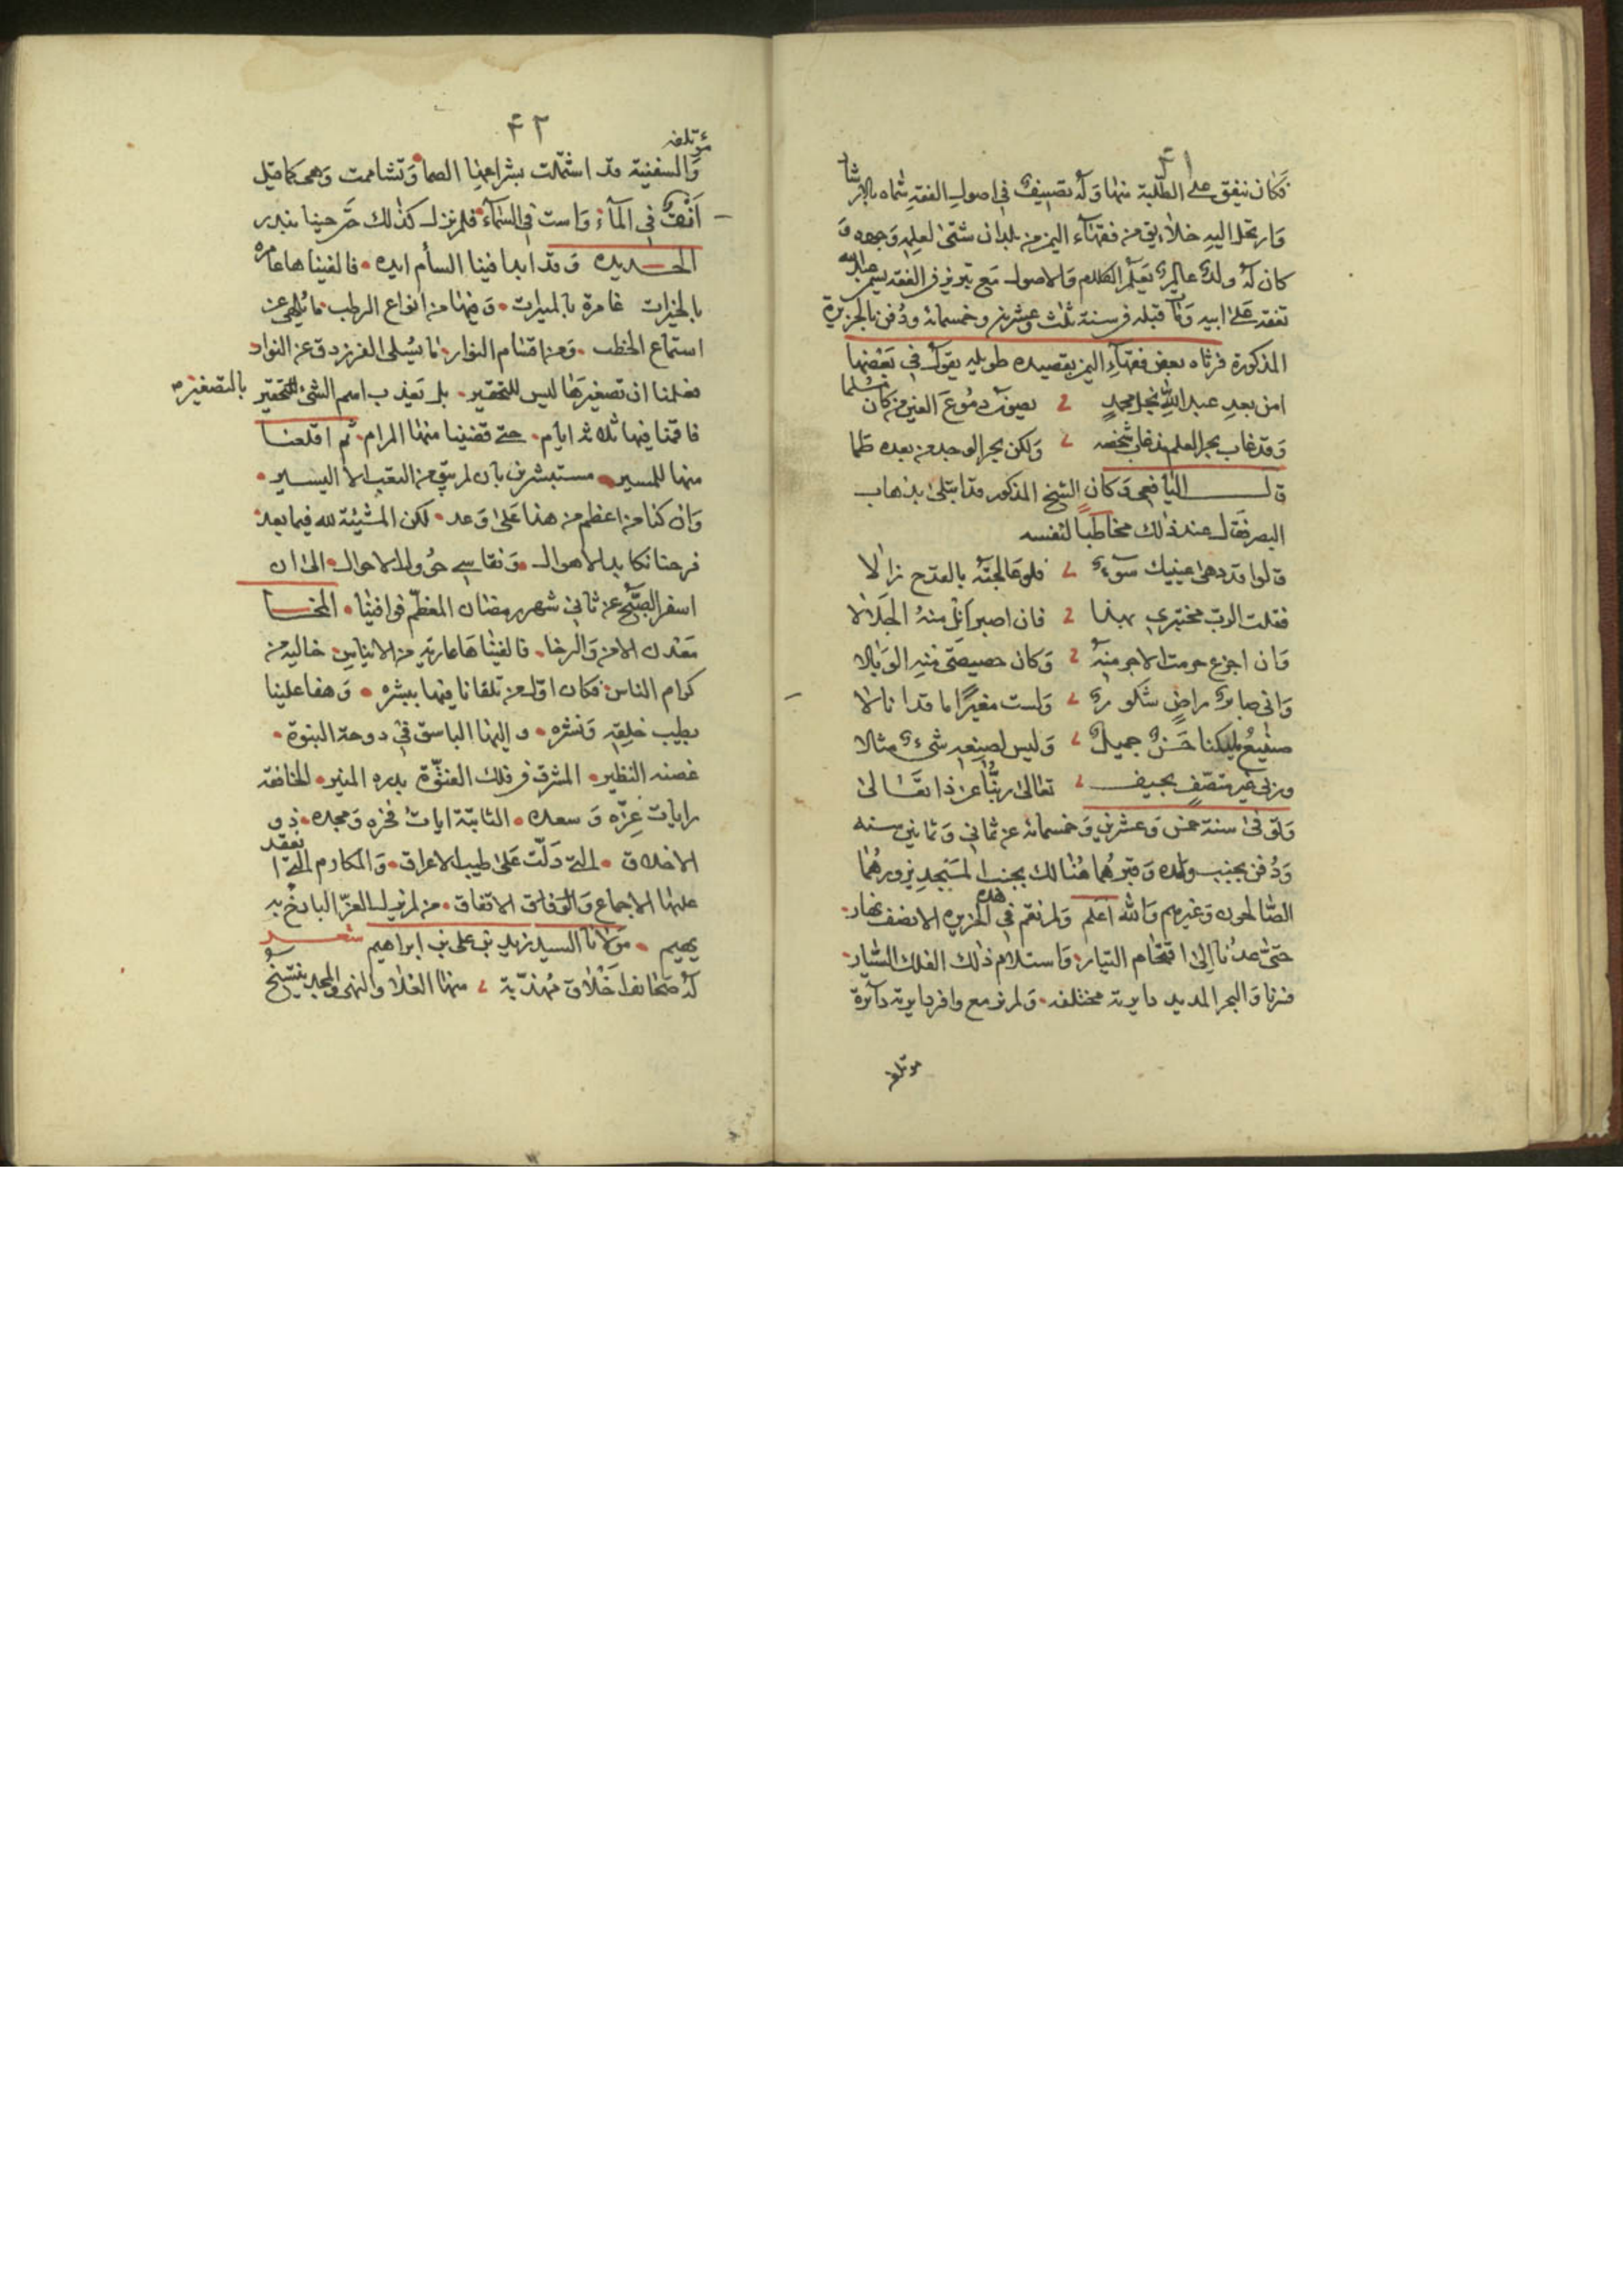 ٤١
فكان ينفق على الطلبة منها وله تصنيف في اصول الفقه سماه بالارشاد
وارتحل اليه خلايق من فقهاء اليمن من بلدان شتى لعلمه وجوده و
كان له ولد عالم بعلم الكلام والاصول مع تبريز في الفقه يسمى عبد الله
تفقه على ابيه ومات قبله في سنة ثلث وعشرين وخمسمائة ودفن بالجزيرة
المذكورة فرثاه بعض فقهاء اليمن بقصيده طويله يقول في بعضها
امن بعد عبد الله نجل محمد ؛ يصون دموع العين من كان مسلما
وقد غاب بحر العلم مذ غاب شخصه ؛ ولكن بحر الوجد من بعده طما
قال اليافعي وكان الشيخ المذكور قد ابتلى بذهاب
البصر فقال عند ذلك مخاطبا لنفسه
قالوا قد دهى عينيك سوء ؛ فلو عالجته بالقدح زالا
فقلت الرب مختبري بهذا ؛ فان اصبر انل منه الجلالا
وان اجزع حرمت الاجر منه ؛ وكان حصيصتى منه الوبالا
واني صابر راض شكور ؛ ولست مغيرا ما قد انالا
صنيع مليكنا حسن جميل ؛ وليس لصنعه شيء مثالا
وربي غير متصف بحيف ؛ تعالى ربنا عن ذا تعالى
وتوفى سنة خمس وعشرين وخمسمائة عن ثماني وثمانين سنه
ودفن بجنب ولده وقبرهما هنالك بجنب المسجد يزورهما
الصالحون وغيرهم والله اعلم ولم نقم في هذه الجزيره الا نصف نهار
حتى عدنا الى اقتحام التيار واستلام ذلك الفلك السيار
فسرنا والبحر المديد دايرته مختلفه ولم نر مع وافر دايرته دآئرة
مؤتلفه
٤٢
مؤتلفه
والسفينة قد اشتملت بشراعها الصما وتشاممت وهي كما قيل
انف في المآء واست في السمآء فلم نزل كذلك حتى حينا بندر
الحديده وقد ابدا فينا السأم ايده فالفيناها عامره
بالخيرات غامرة بالمبرات وفيها من انواع الرطب ما يلهي عن
استماع الخطب ومن اقسام النوار ما يسلى الفرزدق عن النوار
فعلمنا ان تصغيرها ليس للتحقير بل تعذب اسم الشئ للتحقير بالتصغير
فاقمنا فيها ثلاثة ايام حتى قضينا منها المرام ثم اقلعنا
منها للمسير مستبشرين بان لم يبق من التعب الا اليسير
وان كنا من اعظم من هذا على وعد لكن المشيئة لله فيما بعد
فرحنا نكابد الاهوال ونقاسي حوول الاحوال الى ان
اسفر الصبح عن ثاني شهر رمضان المعظم فوافينا المخا
معدن الامن والرخا فالفيناها عارية من الايناس خالية من
كرام الناس فكان اول من تلقانا فيها ببشره وهفا علينا
بطيب خلقه ونشره واليها الباسق في دوحة النبوة
غصنه النظير المشرق في فلك الفتوة بدره المنير الخافقة
رايات عزه وسعده الثابتة ايات فخره ومجده ذو
الاخلاق التي دلت على طيب الاعراق والمكارم التي انعقد
عليها الاجماع والوفاق الاتفاق من لم يزل العز الباذخ به
يهيم مولانا السيد زيد بن علي بن ابراهيم شعر
له صحائف اخلاق مهذبة ؛ منها العلا والنهى والمجد ينتسخ